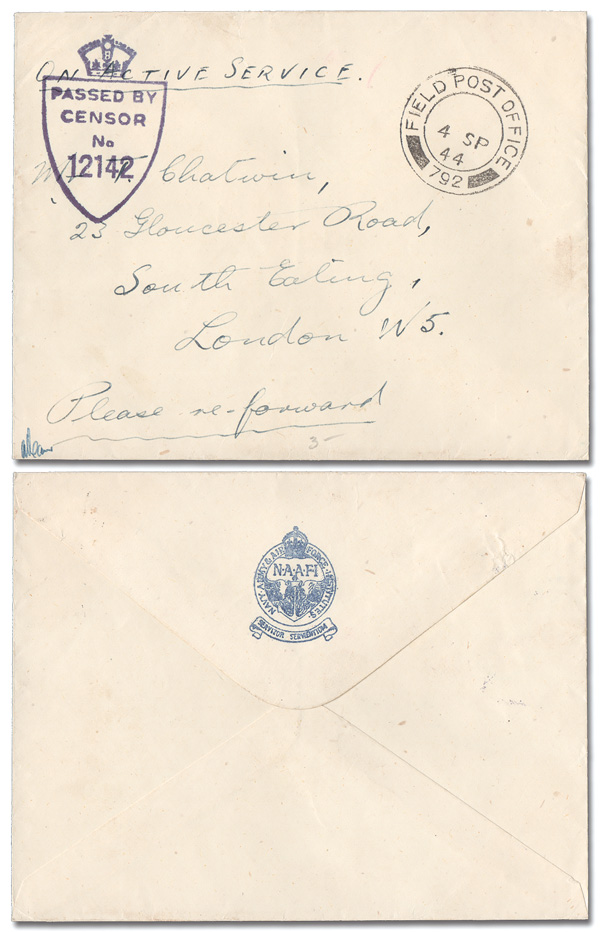 ON ACTIVE SERVICE.
8
PASSED BY
CENSOR
No
12142
FIELD POST OFFICE
4 SP
44
792
T. Chatwin,
23 Gloucester Road,
South Ealing,
London W5.
Please re-forward
3-
NAVY, ARMY & AIR FORCE INSTITUTES
N·A·A·F·I
SERVITOR SERVIENTIUM